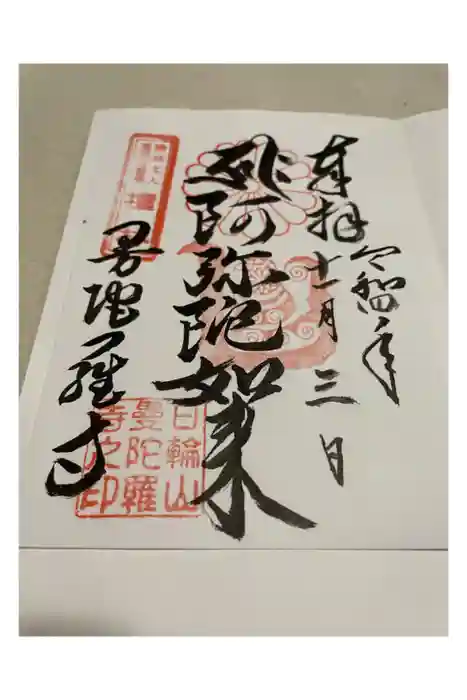 奉拝
令和四年
十一月三日
阿弥陀如来
曼陀羅寺
日輪山
曼陀羅
寺之印